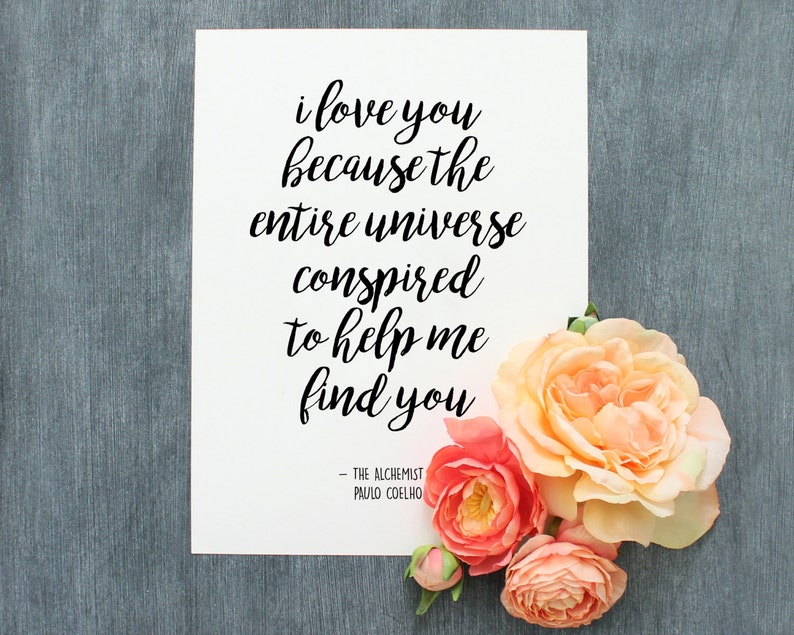 i love you
because the
entire universe
conspired
to help me
find you
— THE ALCHEMIST
PAULO COELHO